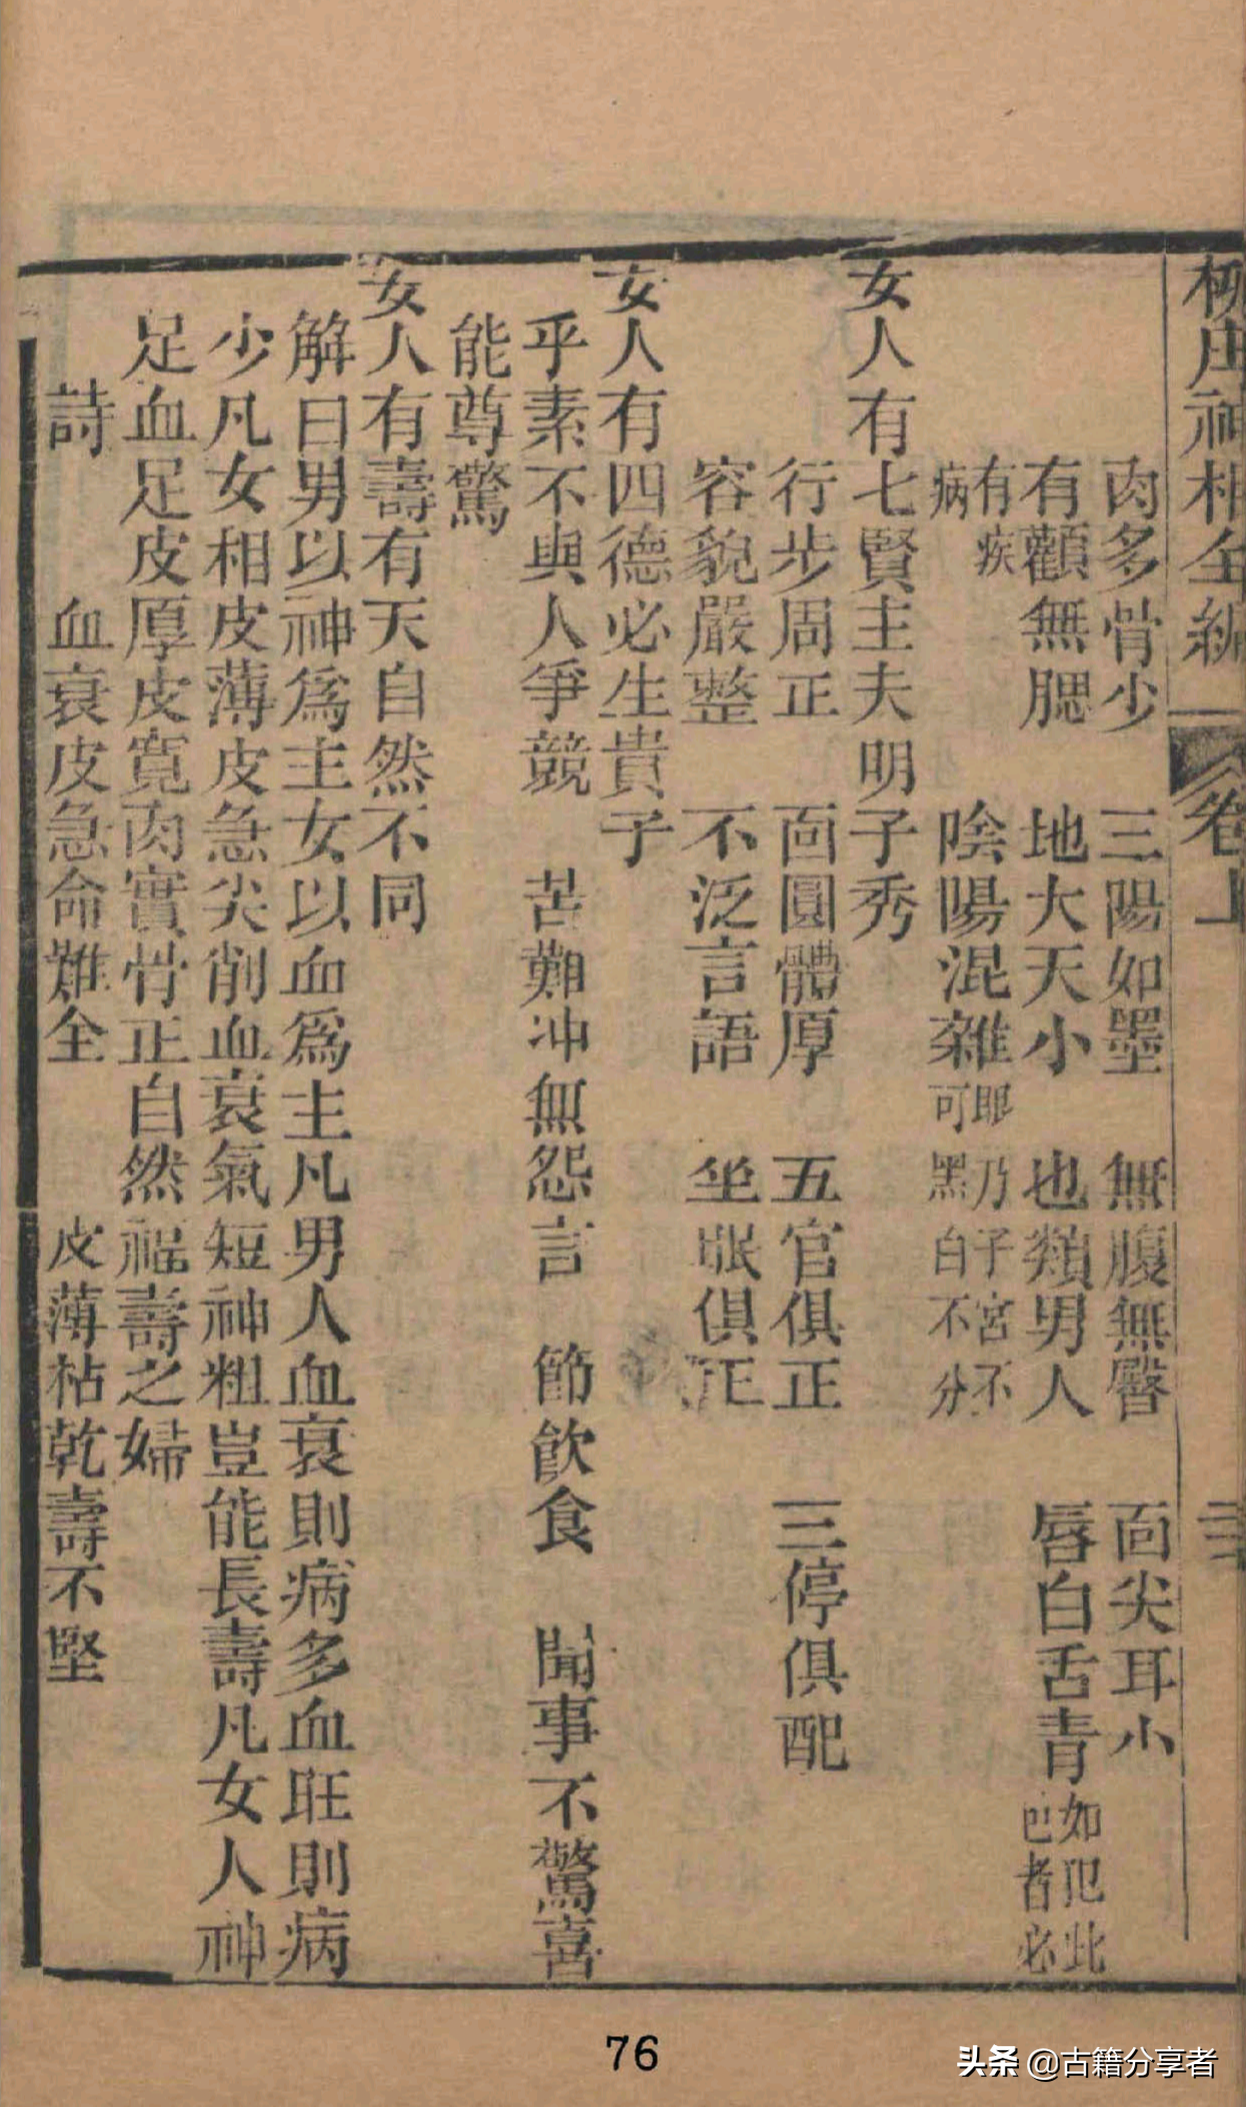 柳庄神相全編
卷上
肉多骨少 三陽如墨 無腹無臀 面尖耳小
有顴無腮 地大天小 也類男人 唇白舌青 如犯此 巴者必
有疾 病 陰陽混雜 眼乃子宮不 可黑白不分
女人有七賢主夫明子秀
行步周正 面圓體厚 五官俱正 三停俱配
容貌嚴整 不泛言語 坐眠俱正
女人有四德必生貴子
乎素不與人爭競 苦難冲無怨言 節飲食 聞事不驚喜
能尊驚
女人有壽有夭自然不同
解曰男以神為主女以血為主凡男人血衰則病多血旺則病
少凡女相皮薄皮急尖削血衰氣短神粗豈能長壽凡女人神
足血足皮厚皮寬肉實骨正自然福壽之婦
詩 血衰皮急命難全 皮薄枯乾壽不堅
76
头条 @古籍分享者